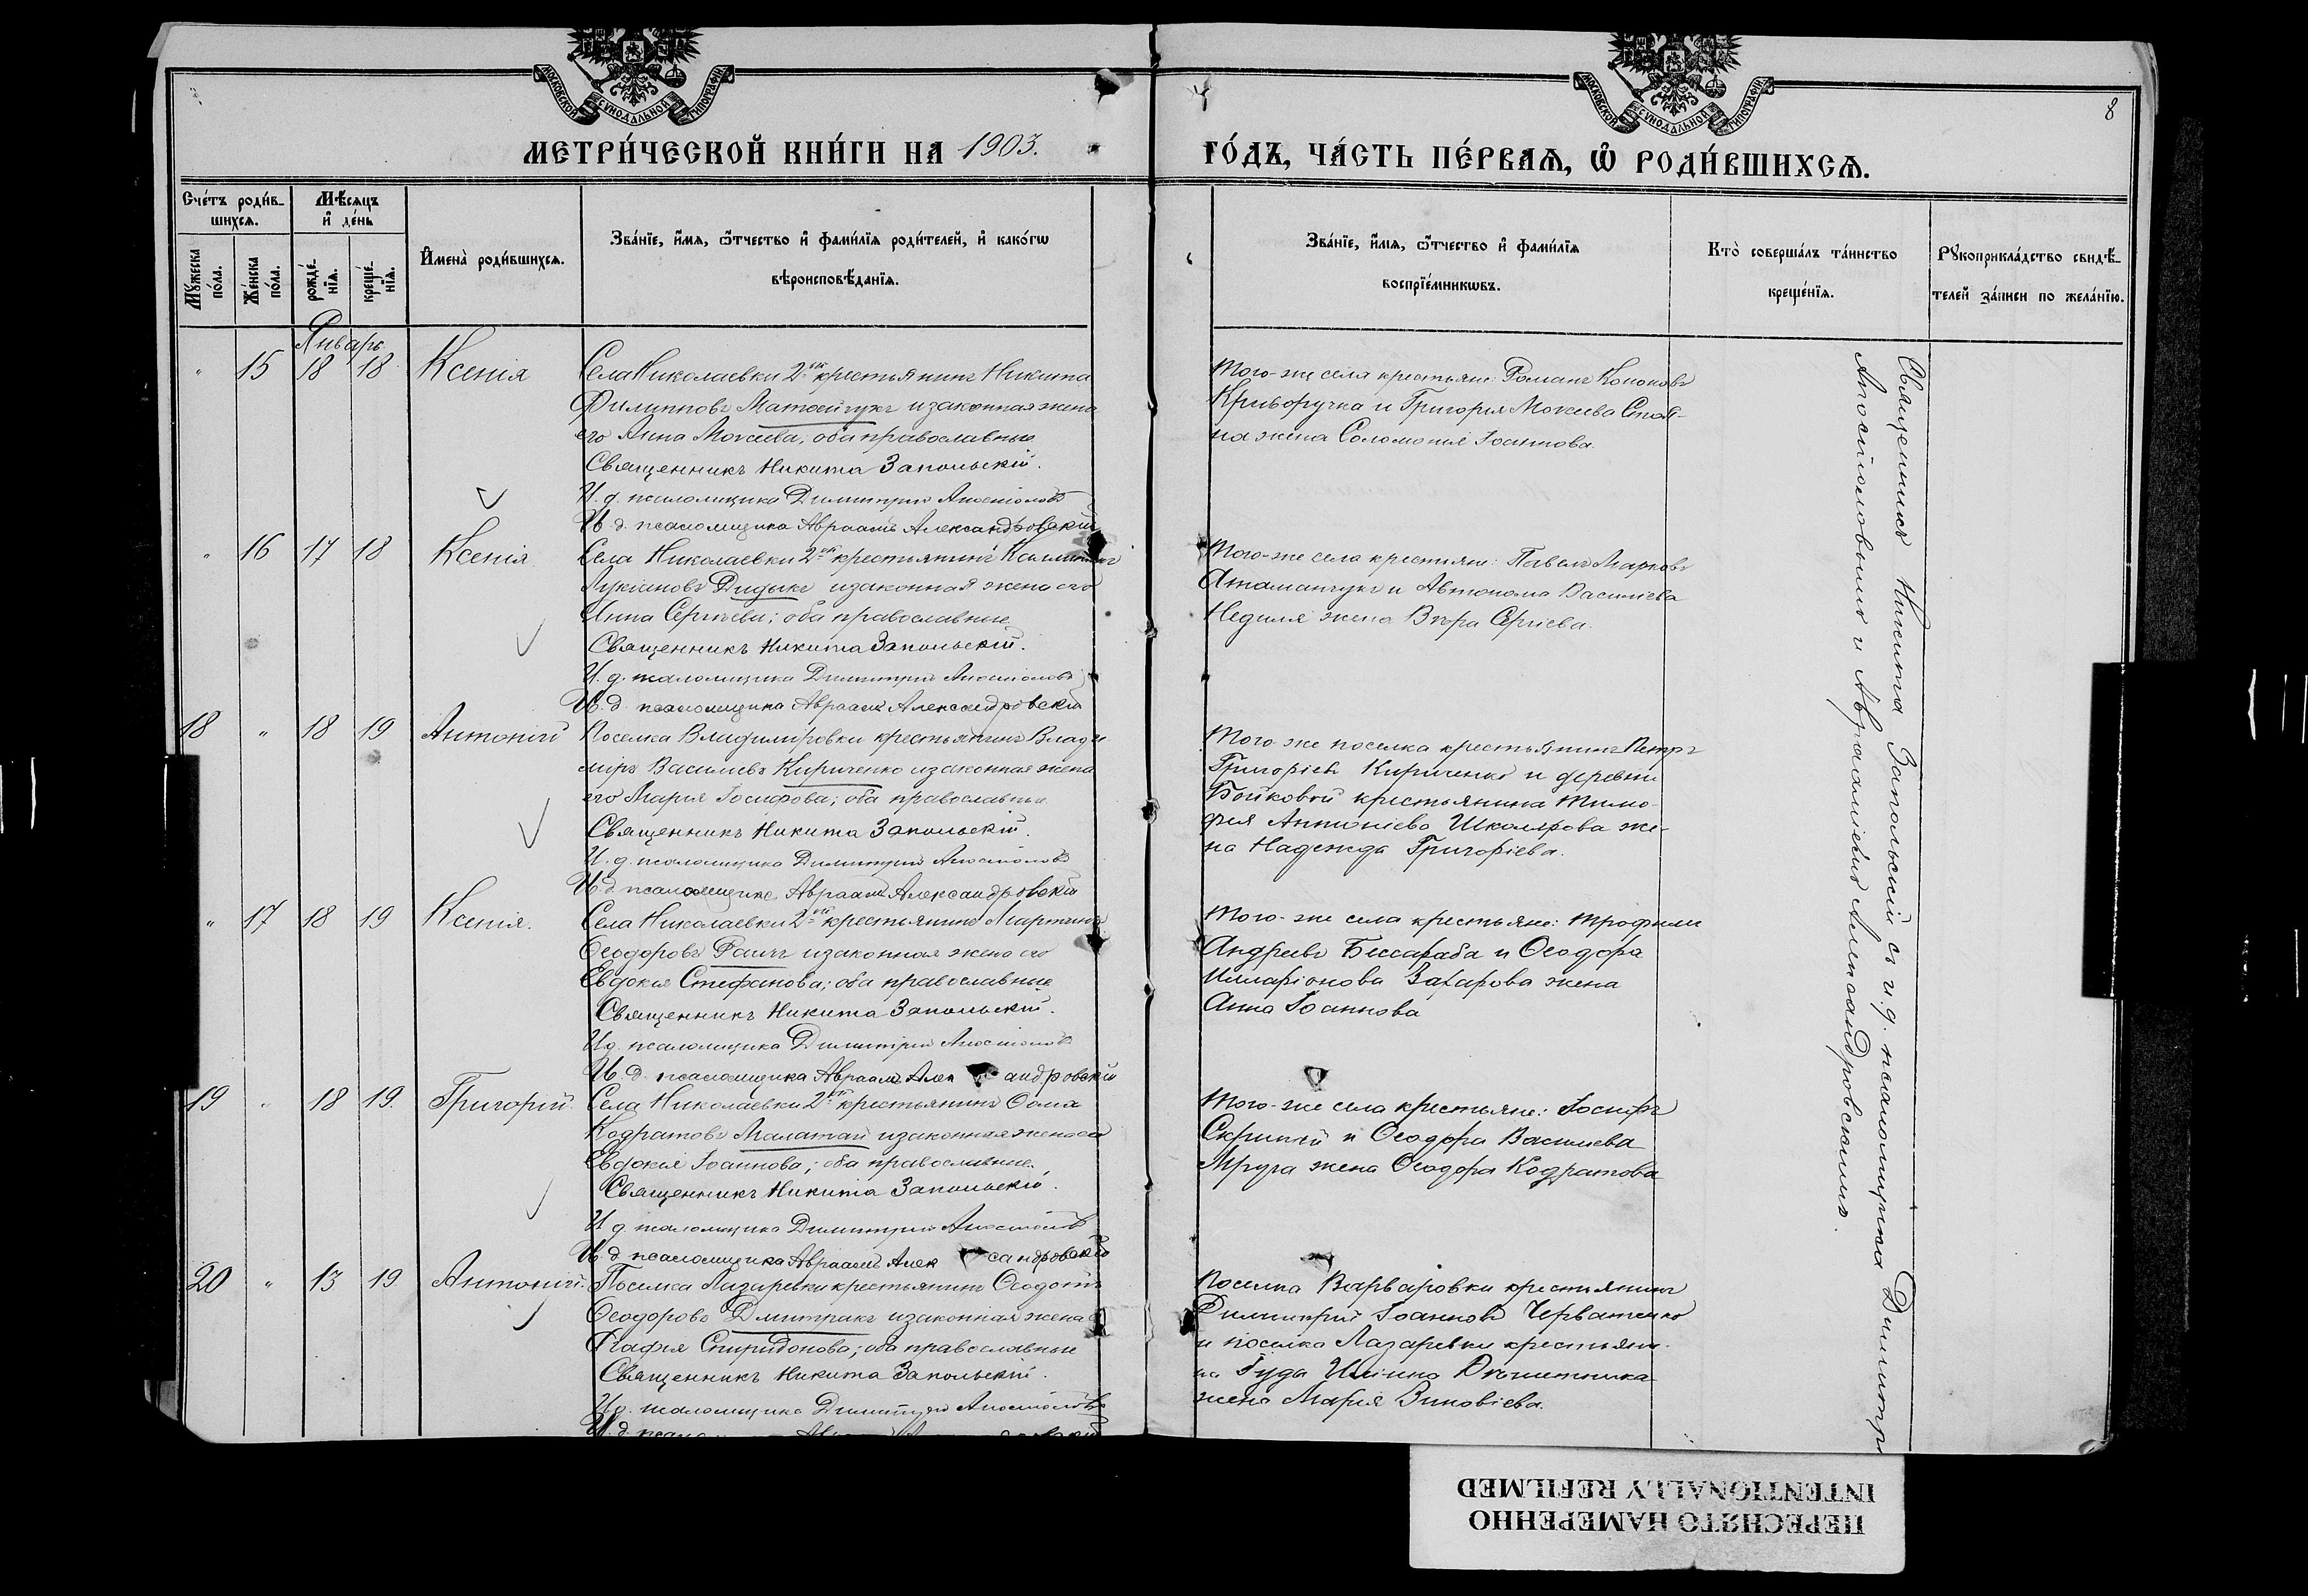 МОСКОВСКОЙ СѴНОДАЛЬНОЙ ТИПОГРАФІИ
МОСКОВСКОЙ СѴНОДАЛЬНОЙ ТИПОГРАФІИ
8
МЕТРИ́ЧЕСКОЙ КНИ́ГИ НА 1903.
ГО́ДЪ, ЧА́СТЬ ПЕ́РВАѦ, Ѡ РОДИ́ВШИХСѦ.
Сче́тъ роди́в-
шихсѧ.
Мѣ́сѧцъ
и҆ де́нь
Мꙋ́жеска
по́ла.
Же́нска
по́ла.
рожде́-
нїѧ.
креще́-
нїѧ.
И҆мена̀ роди́вшихсѧ.
Зва́нїе, и҆́мѧ, ѻ҆́тчество и҆ фами́лїѧ роди́телей, и҆ како́гѡ
вѣроисповѣ́данїѧ.
Зва́нїе, и҆́мѧ, ѻ҆́тчество и҆ фами́лїѧ
воспрїе́мникѡвъ.
Кто̀ соверша́лъ та́инство
креще́нїѧ.
Рꙋкоприкла́дство свидѣ́-
телей за́писи по жела́нїю.
Январь
" 15 18 18 Ксенія
Села Николаевки 2ой крестьянинъ Никита
Филипповъ Матвійчукъ и законная жена
его Анна Мокиева; оба православные
Священникъ Никита Запольскій.
И. д. псаломщика Димитрій Апостоловъ
И. д. псаломщика Авраамъ Александровскій
Того-же села крестьяне: Романъ Кононовъ
Криворучка и Григорія Мокиева
на жена Соломонія Іоаннова.
" 16 17 18 Ксенія.
Села Николаевки 2ой крестьянинъ
Лукіановъ Дидыкъ и законная жена его
Анна Сергіева; оба православные
Священникъ Никита Запольскій.
И. д. псаломщика Димитрій Апостоловъ
И. д. псаломщика Авраамъ Александровскій
Того-же села крестьяне: Павелъ Марковъ
Атаманчукъ и Автонома Василіева
Недиля жена Вѣра Сергіева.
18 " 18 19 Антоній
Поселка Владимировки крестьянинъ Влади
міръ Василіевъ Кириченко и законная жена
его Марія Іосифова; оба православные
Священникъ Никита Запольскій.
И. д. псаломщика Димитрій Апостоловъ
И. д. псаломщика Авраамъ Александровскій
Того же поселка крестьянинъ Петръ
Григоріевъ Кириченко и деревни
Бойковой крестьянина Тимо-
фея Антоніева Школярова же-
на Надежда Григоріева.
" 17 18 19 Ксенія.
Села Николаевки 2ой крестьянинъ Мартинъ
Ѳеодоровъ Раичъ и законная жена его
Евдокія Стефанова; оба православные
Священникъ Никита Запольскій.
И. д. псаломщика Димитрій Апостоловъ
И. д. псаломщика Авраамъ Александровскій
Того-же села крестьяне: Трофимъ
Андреевъ Бессараба и Ѳеодора
Илларіонова Захарова жена
Анна Іоаннова
19 " 18 19. Григорій.
Села Николаевки 2ой крестьянинъ Ѳома
Кодратовъ Малатай и законная жена его
Евдокія Іоаннова; оба православные.
Священникъ Никита Запольскій.
И. д. псаломщика Димитрій Апостоловъ
И. д. псаломщика Авраамъ Александровскій
Того-же села крестьяне: Іосифъ
Скрипій и Ѳеодора Василіева
Мруга жена Ѳеодора Кодратова
20 " 13 19 Антоній.
Поселка Лазаревки крестьянинъ Ѳеодотъ
Ѳеодоровъ Дмитракъ и законная жена его
Агафія Спиридонова; оба православные
Священникъ Никита Запольскій.
И. д. псаломщика Димитрій Апостоловъ
Поселка Варваровки крестьянинъ
Димитрій Іоанновъ Черватенко
и поселка Лазаревки крестьяни-
на Іуда Иліина
жена Марія Зиновіева.
Священникъ Никита Запольскій съ и. д. псаломщика Димитр
Апостоловымъ и Авраамомъ Александровскимъ.
ПЕРЕСНЯТО НАМЕРЕННО
INTENTIONALLY REFILMED